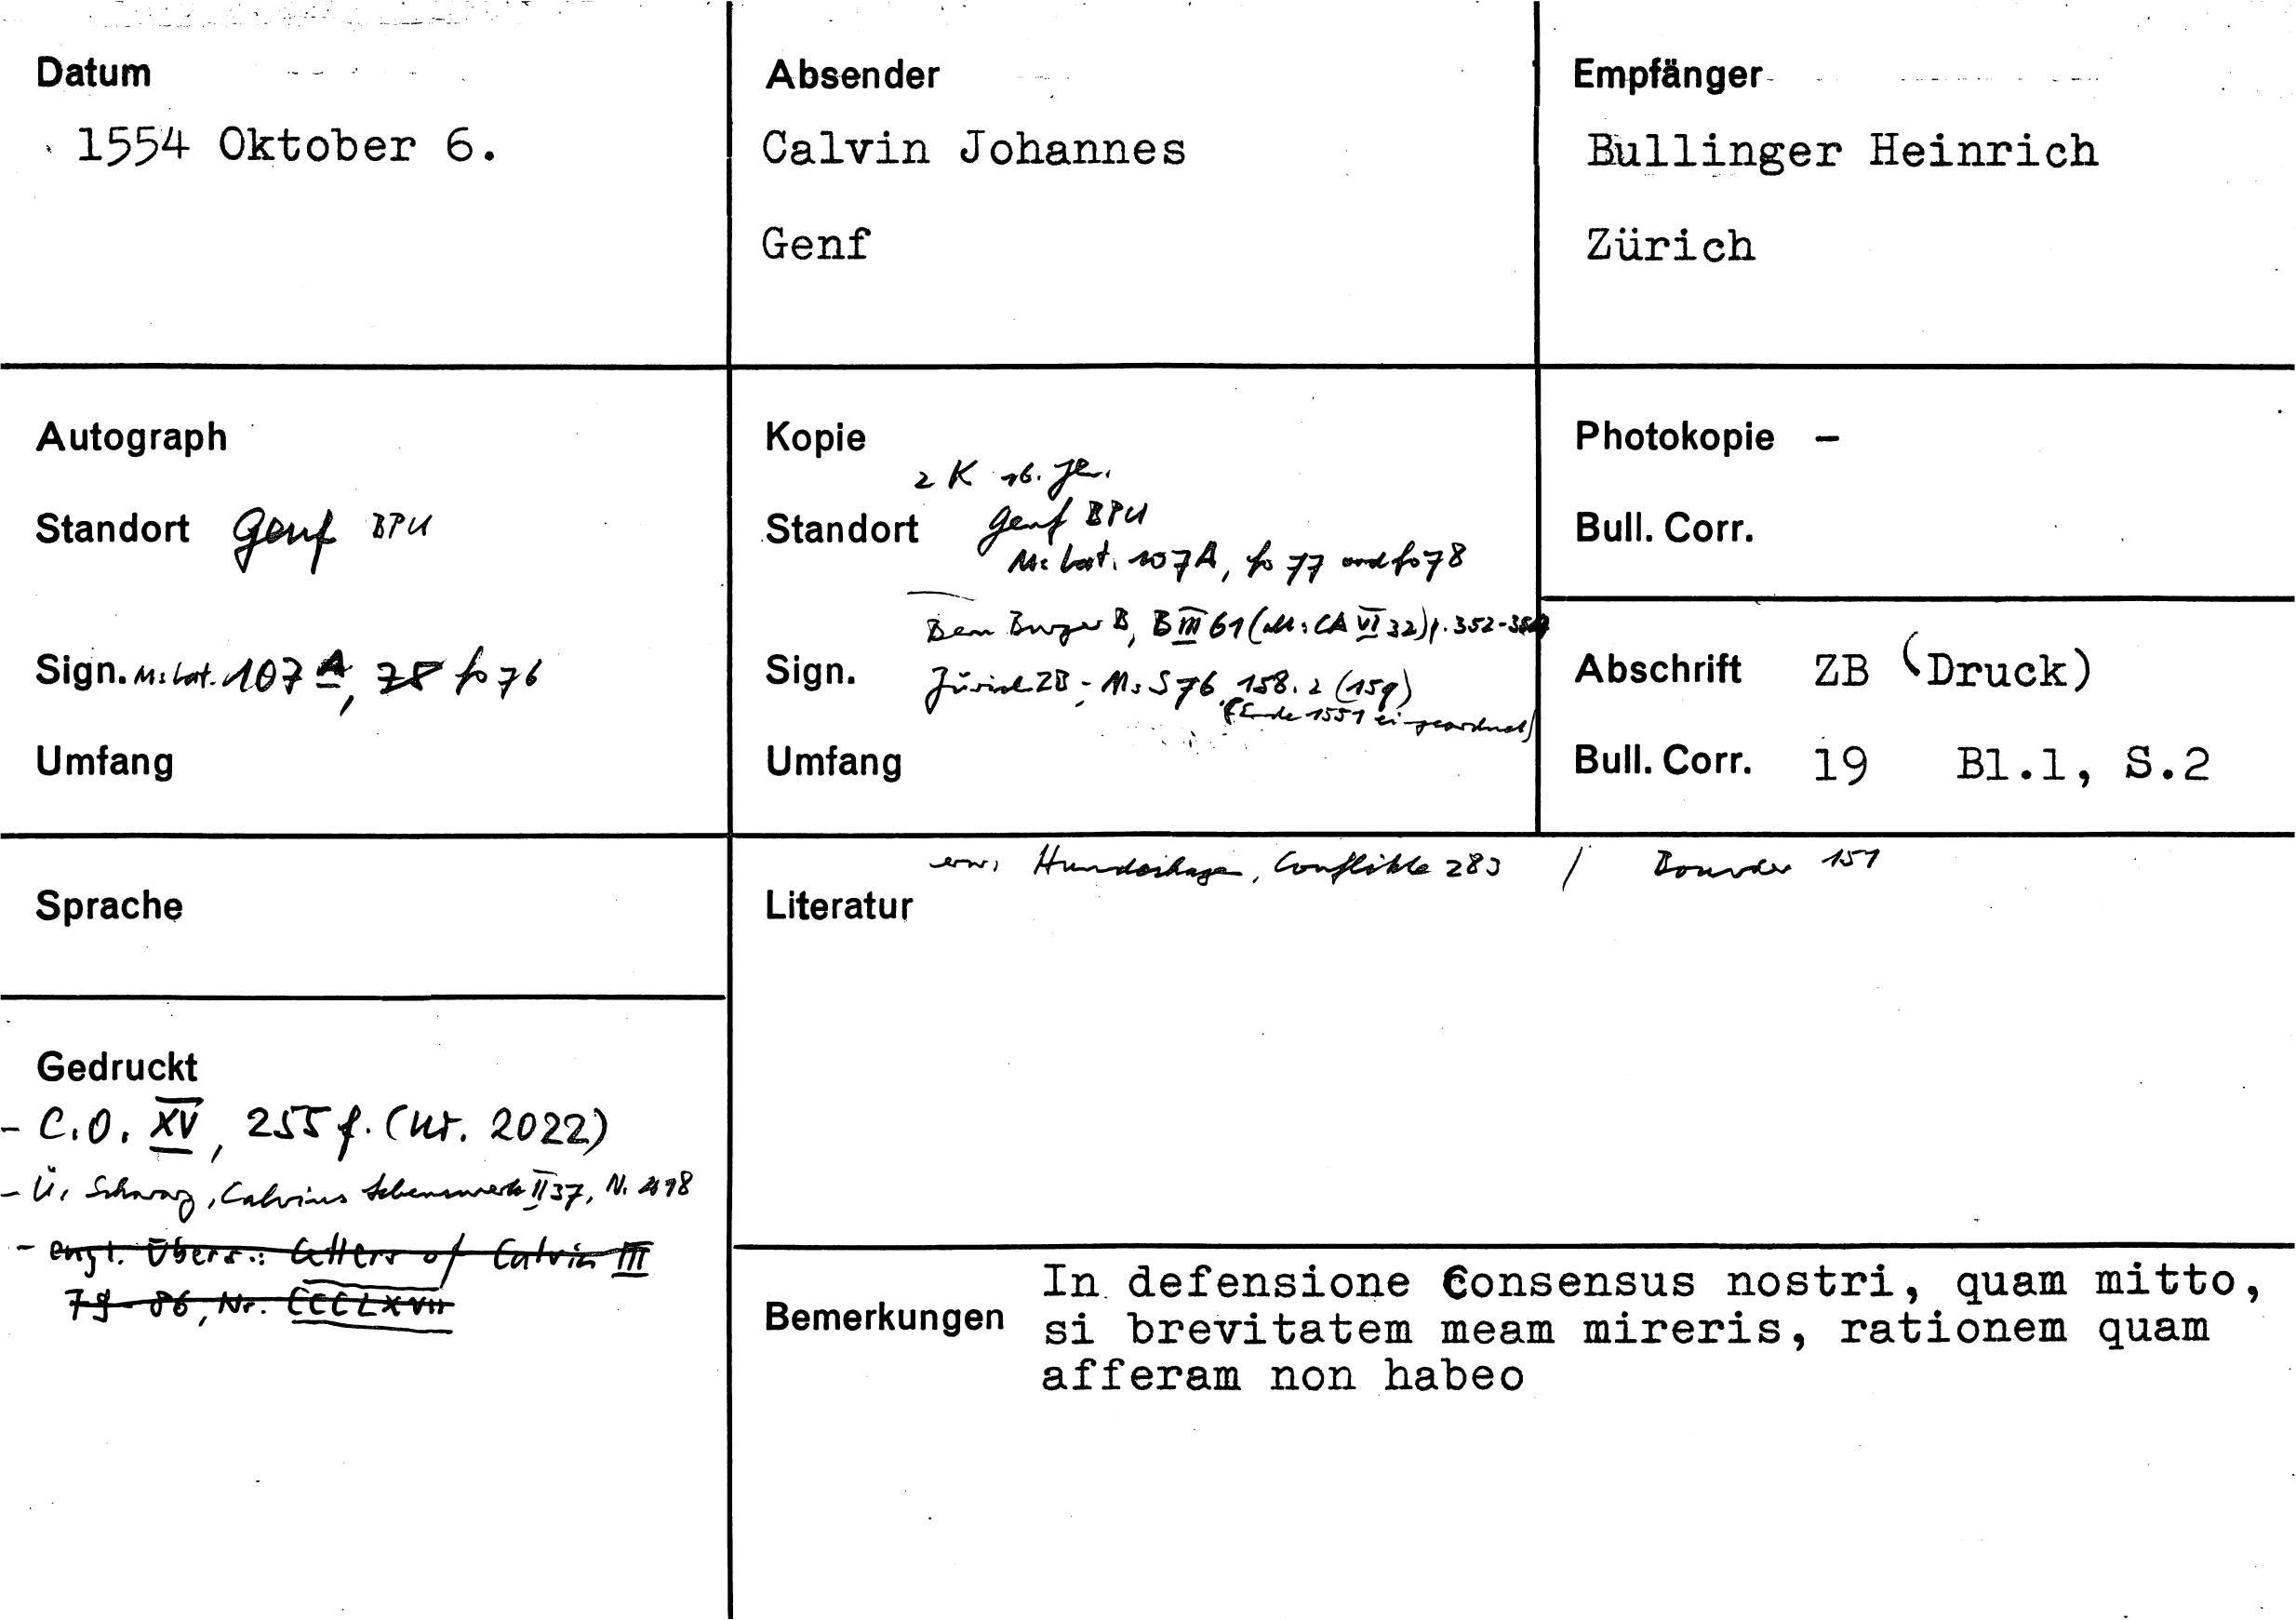 Datum
1554 Oktober 6.
Absender
Calvin Johannes
Genf
Empfänger
Bullinger Heinrich
Zürich
Autograph
Standort Genf BPU
Sign. Ms lat. 107 A, 78 fo 76
Umfang
Kopie
2 K 16. Jh.
Standort Genf BPU
Ms lat. 107A, fo 77 und fo 78
Bern Burger B, B III 61 (alt: CA VI 32) p. 352-354
Sign. Zürich ZB - Ms S 76, 158. 2 (159)
(Ende 1551 eingeordnet)
Umfang
Photokopie –
Bull. Corr.
Abschrift ZB (Druck)
Bull. Corr. 19 Bl.1, S.2
Sprache
Gedruckt
- C.O. XV, 255 f. (Nr. 2022)
- Ü. Schwarz, Calvins Lebenswerk II 37, N.
- engl. Übers.: Letters of Calvin III
79-86, Nr. CCCLXVII
erw. Hundeshagen, Conflikte 283 / 151
Literatur
Bemerkungen
In defensione Consensus nostri, quam mitto,
si brevitatem meam mireris, rationem quam
afferam non habeo